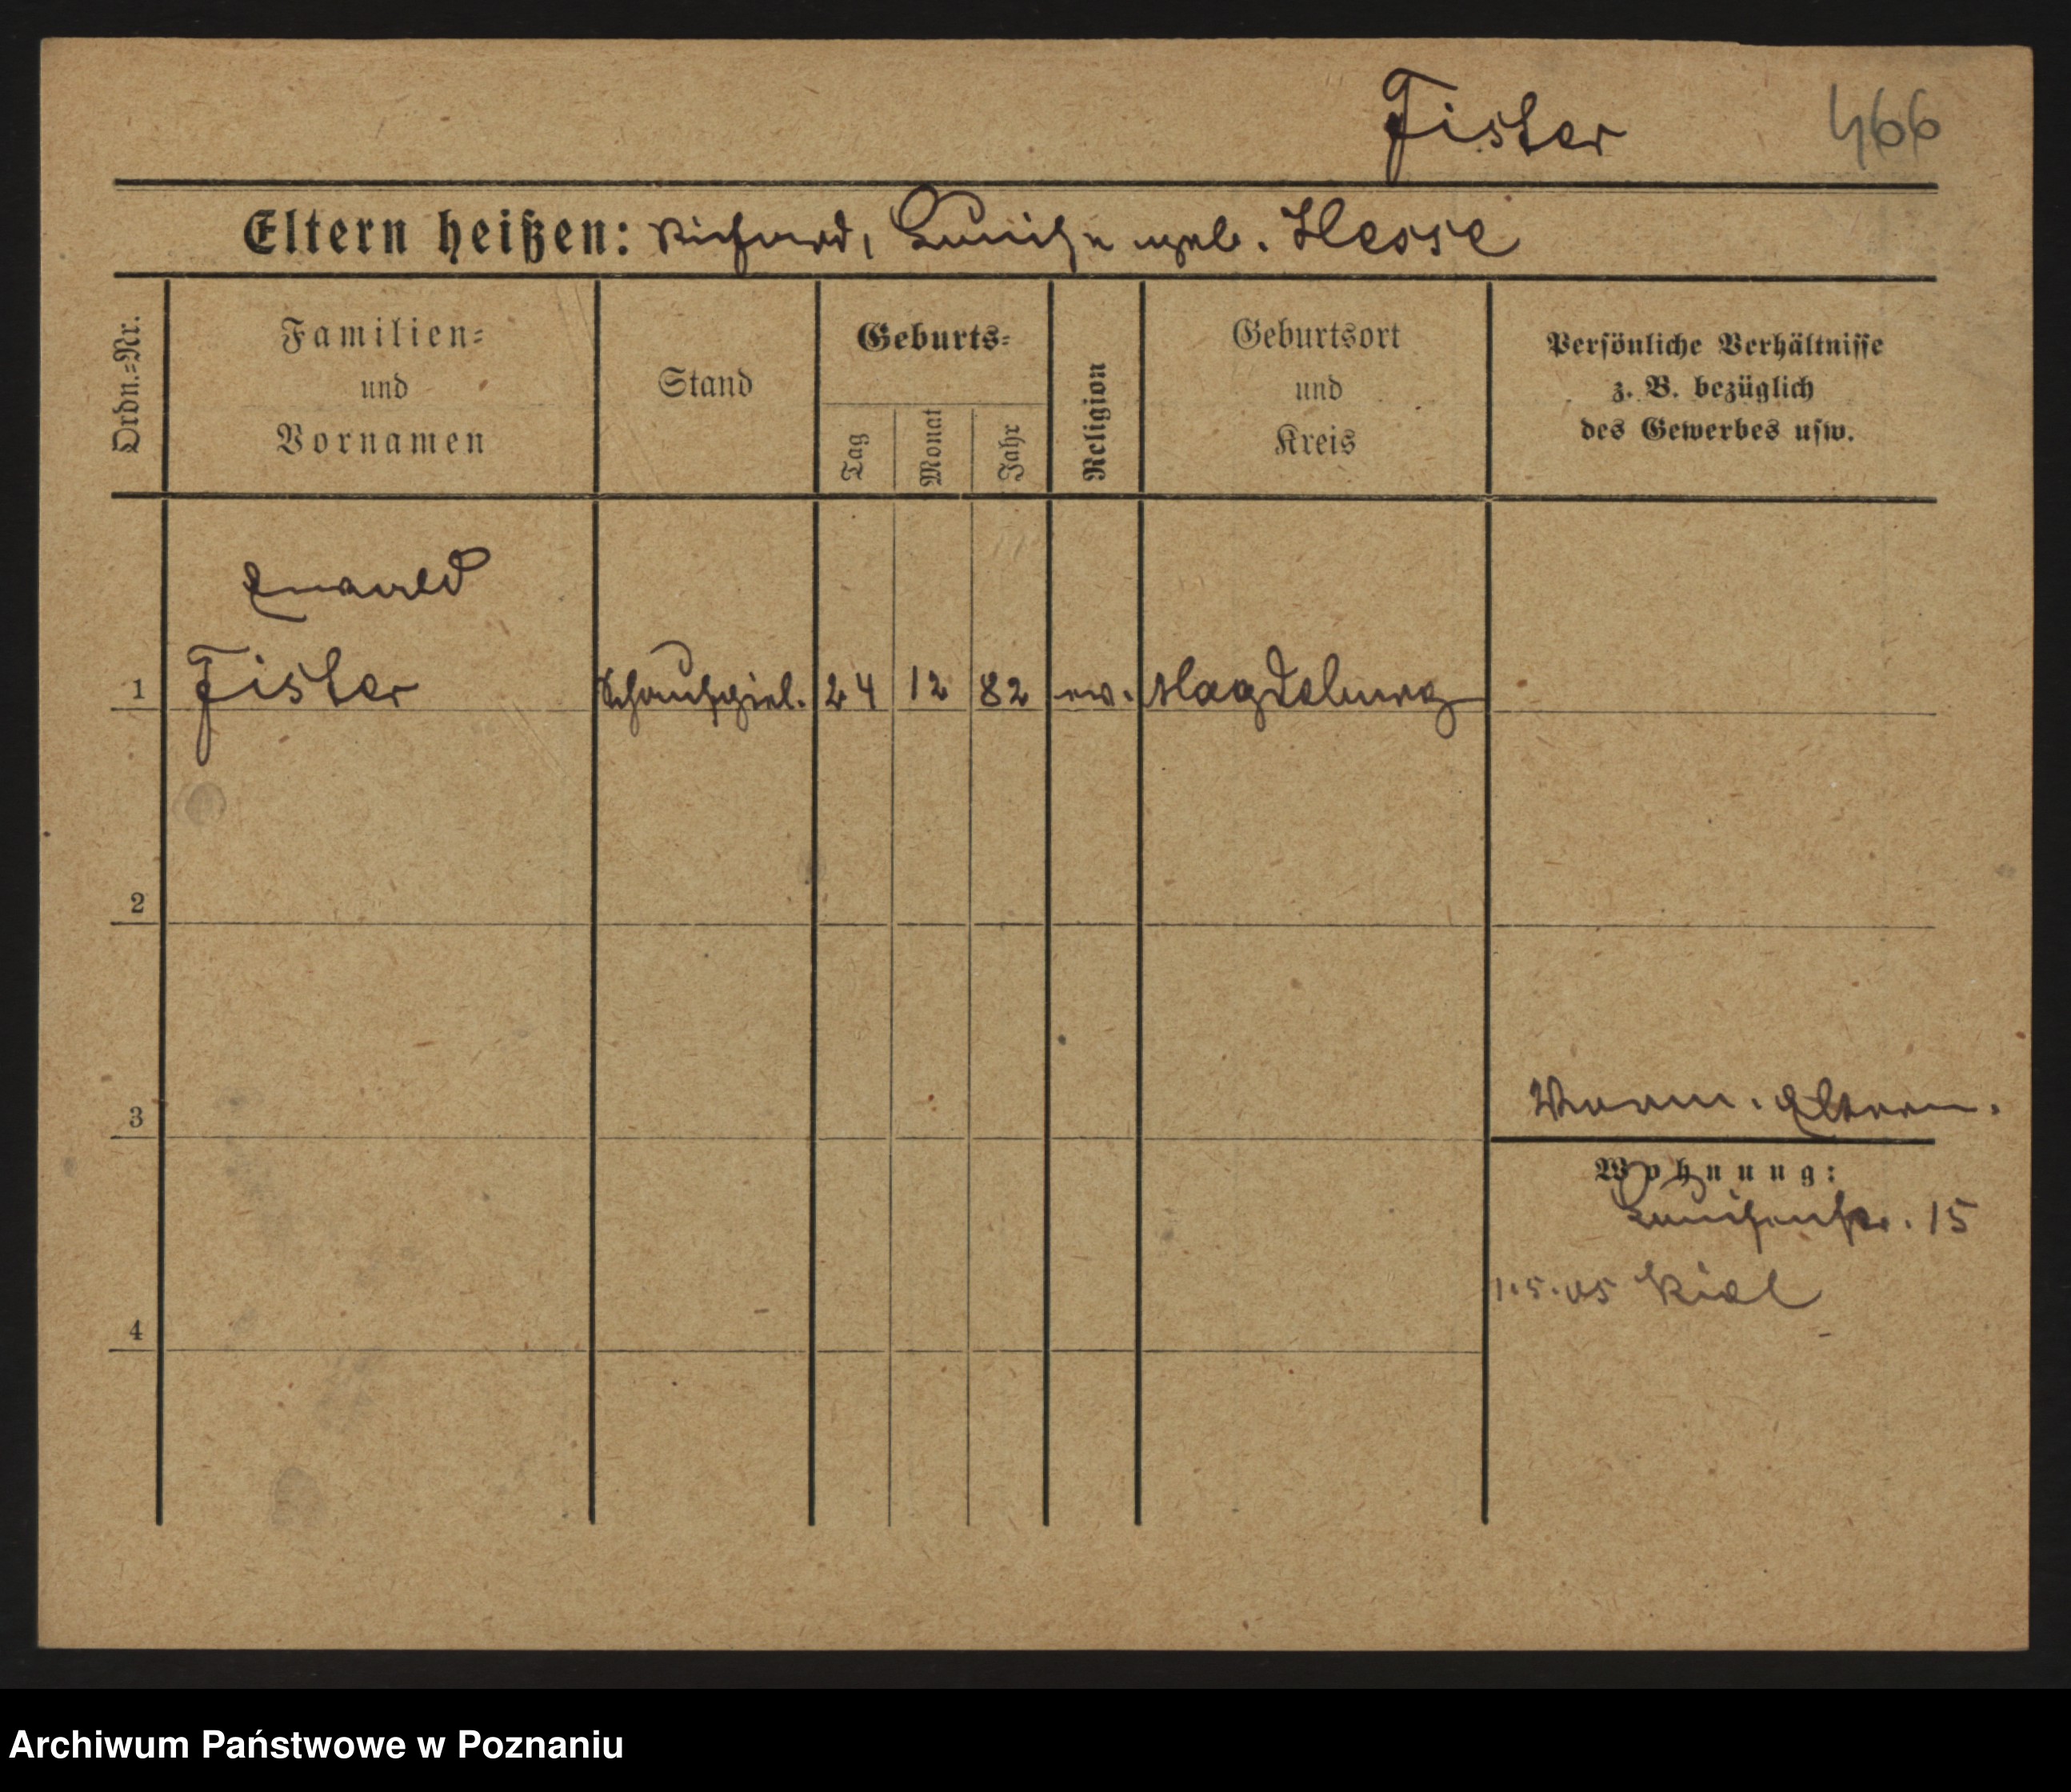 Fister 466
Eltern heißen: Richard, Luise geb. Hesse
Ordn.-Nr.
Familien-
und
Vornamen
Stand
Geburts-
Tag
Monat
Jahr
Religion
Geburtsort
und
Kreis
Persönliche Verhältnisse
z. B. bezüglich
des Gewerbes usw.
Ewald
1 Fister Schauspiel. 24 12 82 ev. Magdeburg
2
3
Eltern.
Wohnung:
Luisenstr. 15
1.5.05 Kiel
4
Archiwum Państwowe w Poznaniu